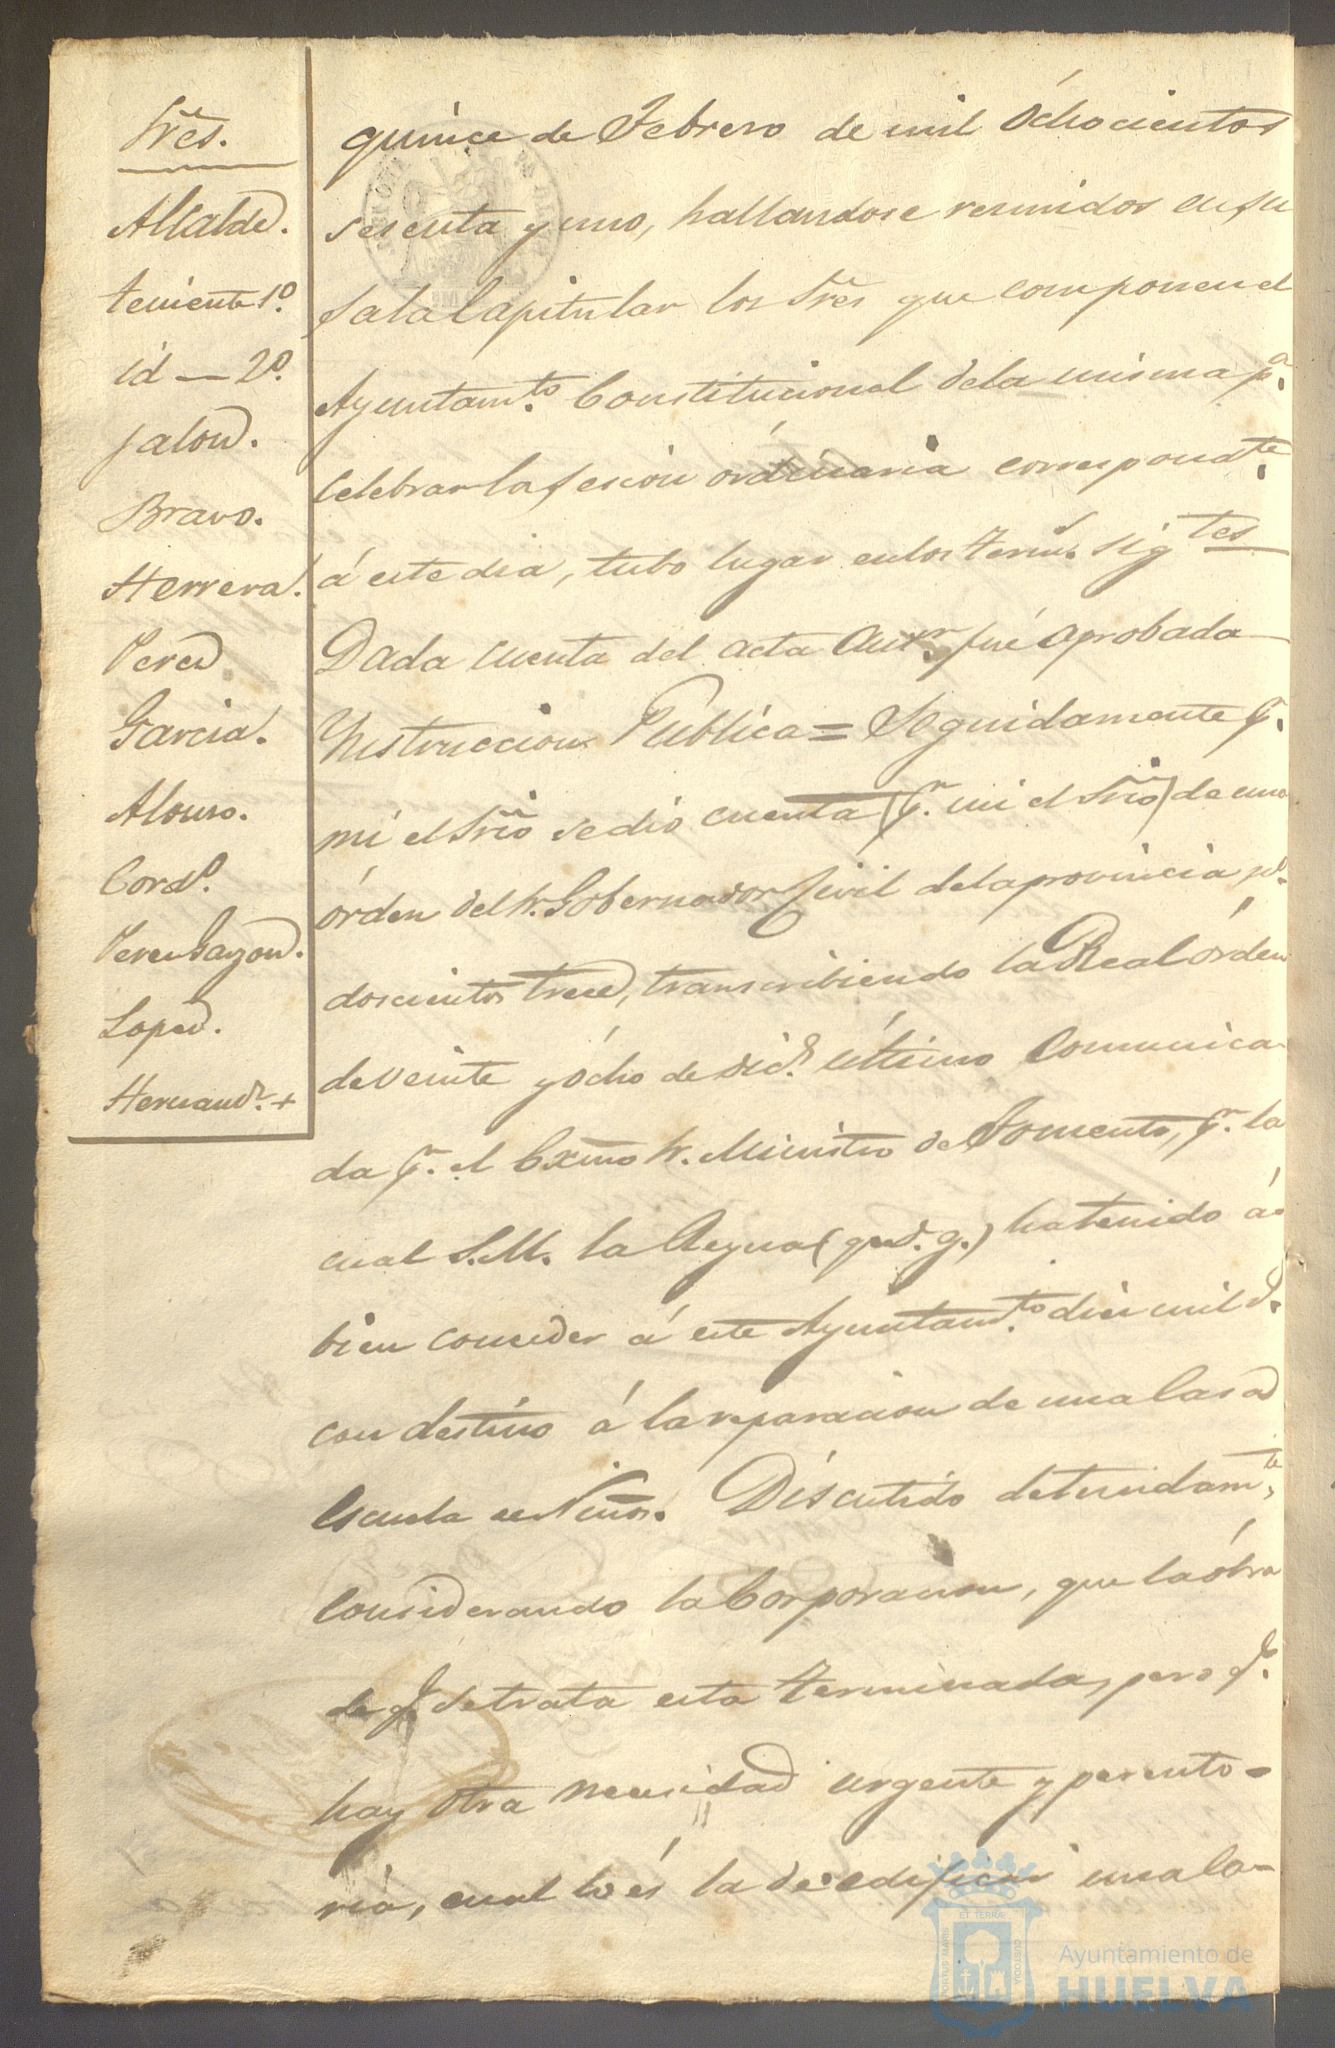 Sres.
Alcalde.
teniente 1º.
id — 2º.
Jalon.
Bravo.
Herrera.
Perez
Garcia.
Alonso.
Cordº.
Perez Garzon.
Lopez.
Hernandz. +
quince de Febrero de mil óchocientos
sesenta y uno, hallandose reunidos en su
sala Capitular los Sres que componen el
Ayuntamto. Constitucional de la misma pa.
celebrar la sesion órdinaria correspondte.
á este dia, tubo lugar en los terms. sigtes
Dada cuenta del acta antr. fué aprobada
Ynstruccion Publica = Seguidamente pr.
mi el Srio se dió cuenta (pr. mi el Srio) de una
órden del Sr. Gobernador Civil de la provincia no.
doscientos trece, transcribiendo la Real órden
de veinte y ócho de dice. último comunica
da pr. el Exmo Sr. Ministro de Fomento, pr. la
cual S.M. la Reyna (q.e.d. g.) ha tenido á
bien conceder á este Ayuntamto. diez mil r.
con destino á la reparacion de una Casa
Escuela de Niños. Discutido detenidamte,
considerando la Corporacion, que la óbra
de qe. se trata esta terminada, pero qe.
hay otra necesidad urgente y perento-
ria, cual lo és la de edificar una lo-
ET TERRÆ
PORTUS MARIS
CUSTODIA
Ayuntamiento de
HUELVA